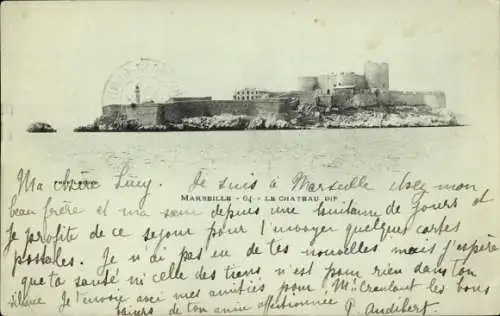 MARSEILLE - 64 - LE CHATEAU D'IF
Ma chère Lucy. Je suis à Marseille chez mon
beau frère et ma sœur depuis une huitaine de jours et
je profite de ce séjour pour t'envoyer quelques cartes
postales. Je n'ai pas eu de tes nouvelles mais j'espère
que ta santé ni celle des tiens n'est pour rien dans ton
silence Je t'envoie avec mes amitiés pour les bons
baisers de ton amie affectionnée P. Audibert